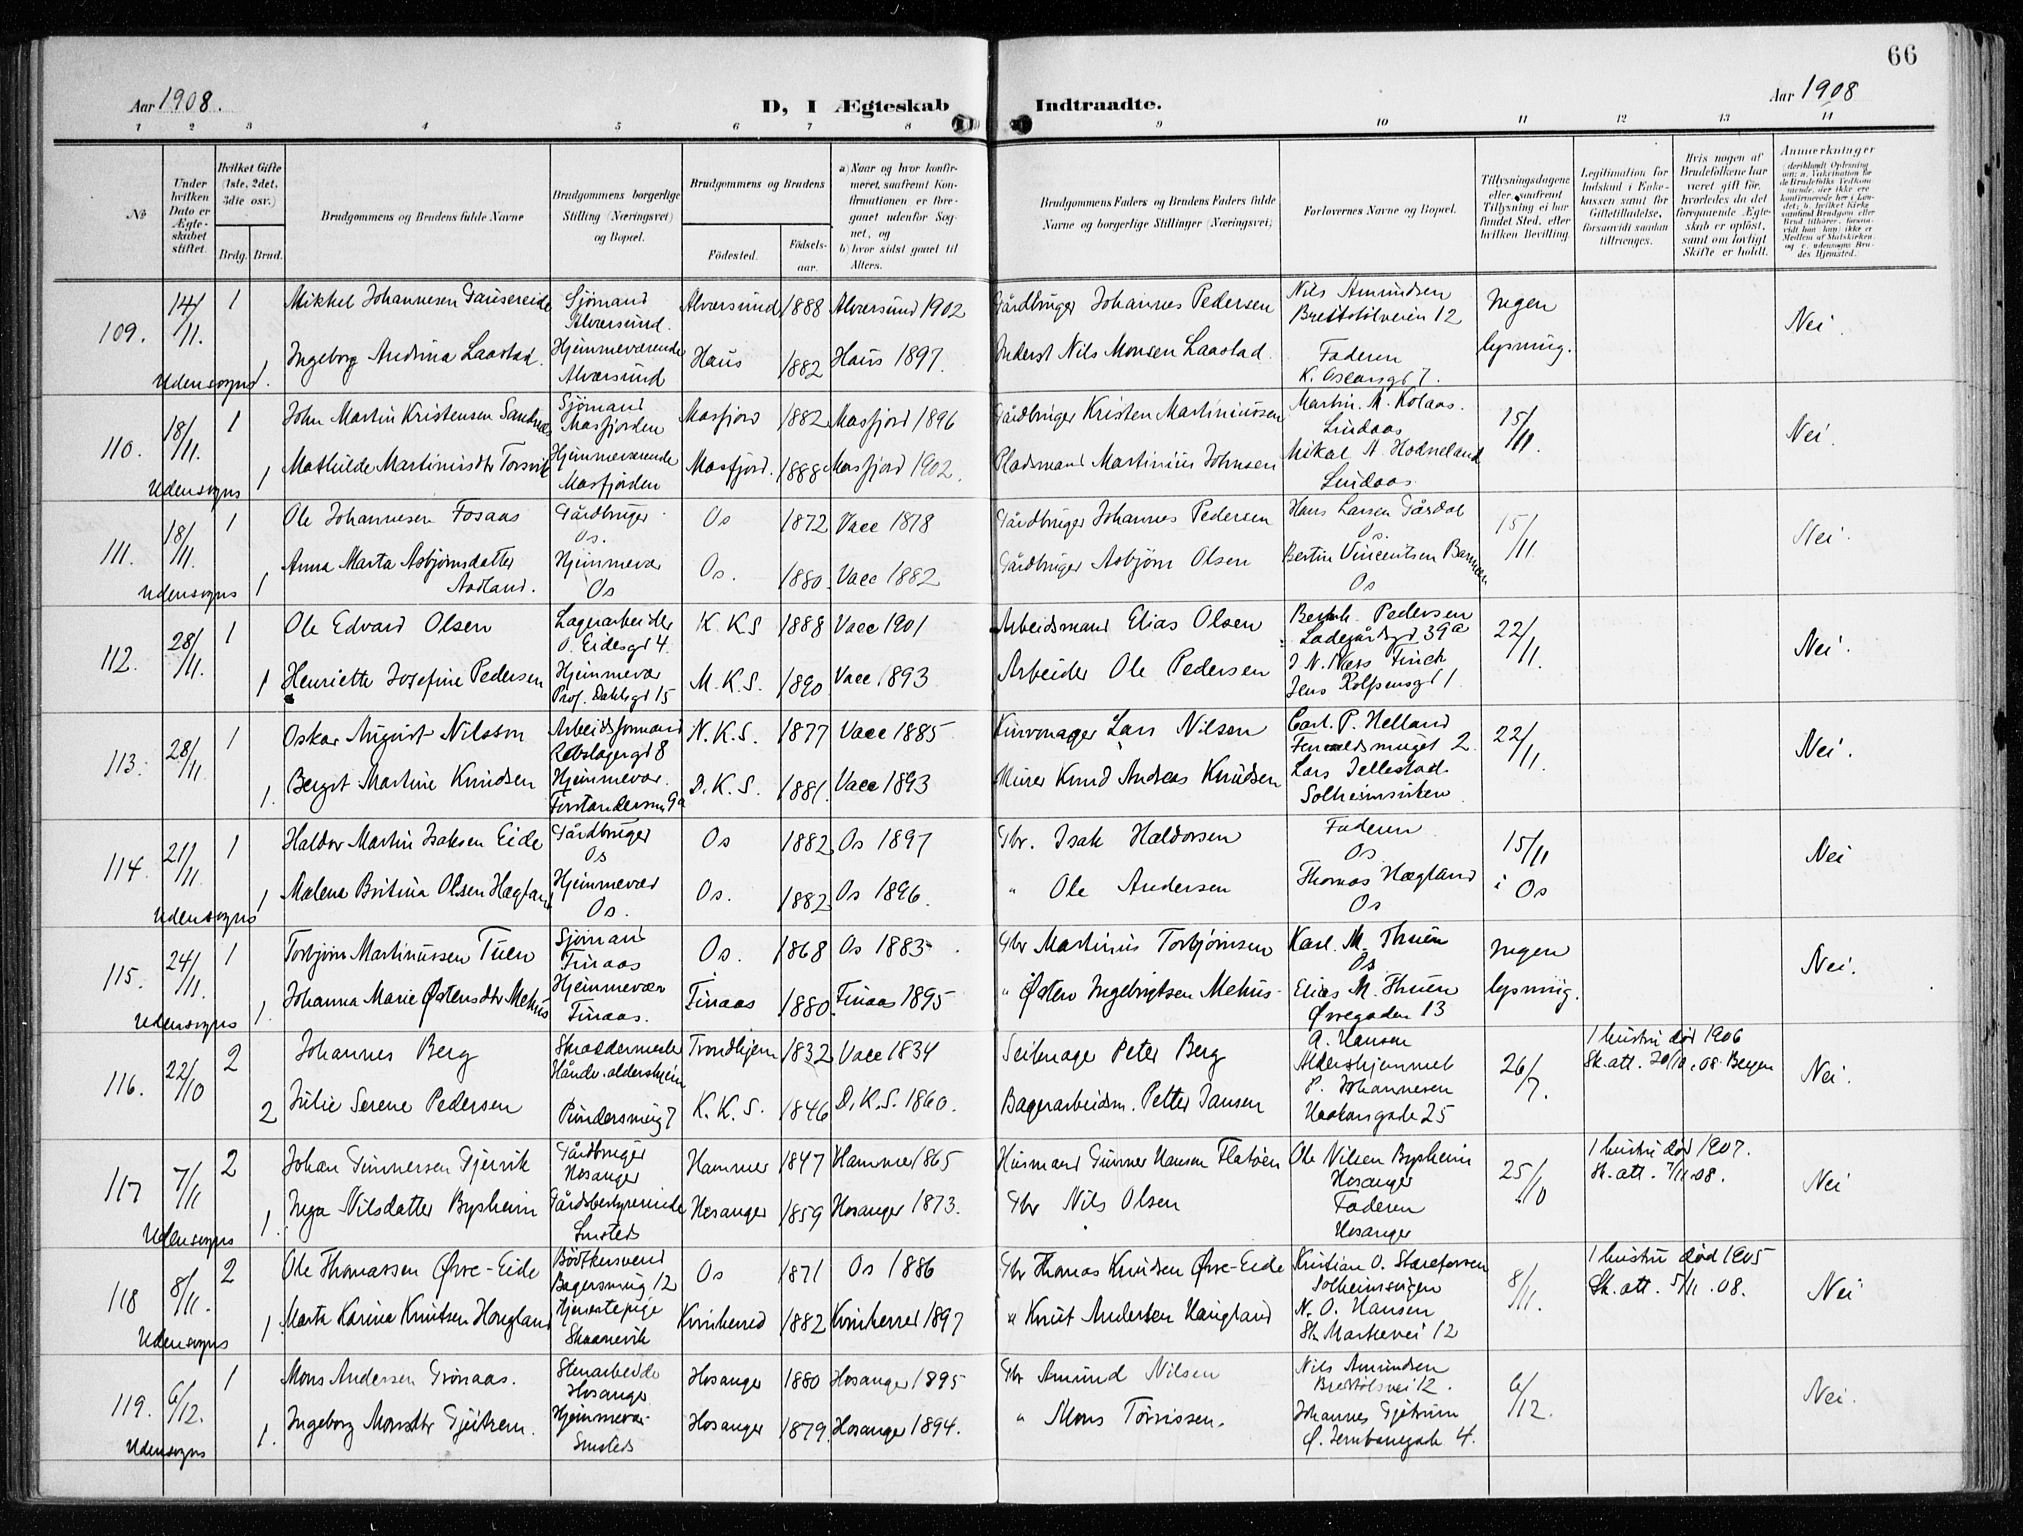 66
Aar 1908.
D, I Ægteskab Indtraadte.
Aar 1908
1 2 3 4 5 6 7 8 9 10 11 12 13 14
No
Under hvilken Dato er Ægteskabet stiftet.
Hvilket Gifte (1ste, 2det, 3die osv.)
Brdg. Brud.
Brudgommens og Brudens fulde Navne
Brudgommens borgerlige Stilling (Næringsvei) og Bopæl.
Brudgommens og Brudens
Fødested. Fødselsaar.
a) Naar og hvor konfirmeret, saafremt Konfirmationen er foregaaet udenfor Sognet, og
b) hvor sidst gaaet til Alters.
Brudgommens Faders og Brudens Faders fulde Navne og borgerlige Stillinger (Næringsvei)
Forlovernes Navne og Bopæl.
Tillysningsdagene eller, saafremt Tillysning ei har fundet Sted, efter hvilken Bevilling.
Legitimation for Indskud i Enkekassen samt for Giftetilladelse, forsaavidt saadan tiltrænges.
Hvis nogen af Brudefolkene har været gift før, hvorledes da det foregaaende Ægteskab er opløst, samt om lovligt Skifte er holdt.
Anmerkninger
109. 14/11. 1 Mikkel Johannesen Gausereide Sjømand Alversund. Alversund 1888 Alversund 1902 Gårdbruger Johannes Pedersen Nils Amundsen Breistølveien 12 Ingen lysning. Nei.
Udensogns. 1 Ingeborg Andrina Laastad. Hjemmeværende Alversund Haus 1882 Haus 1897. Inderst Nils Monsen Laastad Faderen K. Oscarsgt 7.
110. 18/11. 1 John Martin Kristensen Sandnes Sjømand Masfjorden Masfjord 1882 Masfjord 1896 Gårdbruger Kristen Martinussen Martin. M. Kolaas. Lindaas 15/11. Nei.
Udensogns 1 Mathilde Martinusdtr Torsvik Hjemmeværende Masfjorden Masfjord. 1888 Masfjord 1902. Pladsmand Martinius Johnsen Mikal A. Hodneland Lindaas
111. 18/11. 1 Ole Johannesen Fosaas Gårdbruger Os. Os 1872 Vacc 1878 Gårdbruger Johannes Pedersen Hans Larsen Gårdal Os. 15/11 Nei.
Udensogns 1 Anna Marta Asbjørnsdatter Aadland. Hjemmevær Os Os. 1880. Vacc 1882 Gårdbruger Asbjørn Olsen Bertin Vincentsen Os
112. 28/11. 1 Ole Edvard Olsen Lagerarbeider O. Eidesgt 4. K. K. S 1888 Vacc 1901 Arbeidsmand Elias Olsen Bernh. Pedersen Ladegårdsgt 39a 22/11. Nei.
1 Henriette Josefine Pedersen Hjemmevær Prof. Dahlsgt 15 M. K. S. 1890 Vacc 1893 Arbeider Ole Pedersen J. N. Næss Finck Jens Rolfsensgt 1.
113. 28/11 1 Oskar August Nilsson Arbeidsformand Rebslagergt 8 N. K. S. 1877 Vacc 1885. Lars Nilsen Carl. P. Helland 2 22/11. Nei.
1. Bergit Martine Knudsen Hjemmevær. Forstandersm. 9a D. K. S. 1881. Vacc 1893 Murer Knud Andreas Knudsen Lars Tellestad Solheimsviken
114. 21/11. 1 Haldor Martin Isaksen Eide Gårdbruger Os Os 1882 Os 1897 Gbr. Isak Haldorsen Faderen Os 15/11 i Os Nei
Udensogns 1 Malena Britina Olsen Hægland Hjemmevær Os. Os. 1882. Os 1896. " Ole Andersen Thomas Hægland Os
115. 24/11. 1 Torbjørn Martinussen Tuen Sjømand Finaas Os. 1868 Os 1883. Gbr Martinus Torbjørnsen Karl. M. Thuen Os Ingen lysning. Nei.
Udensogns 1. Johanna Marie Østensdtr Mehus Hjemmevær Finaas. Finaas 1880. Finaas 1895 " Østen Ingebrigtsen Mehus Elias M. Thuen Øvregaden 13
116. 22/10 2 Johannes Berg Håndv. aldershjem Trondhjem 1832 Vacc 1834 Seilmager Peter Berg A. Hansen Aldershjemmet 26/7. 1 hustru død 1906 Sk. att. 20/10. 08 Bergen Nei.
2 Julie Serene Pedersen Pundersmug 7 K. K. S. 1846 D. K. S. 1860. Bagerarbeidsm. Petter Jansen P. Johannesen Haakonsgade 25
117 7/11 2 Johan Gunnersen Fjervik Gårdbruger Hosanger Hammer 1847 Hammer 1865 Husmand Gunner Hansen Flatøen Ole Nilsen Bysheim Hosanger 25/10 1 hustru død 1907. Sk. att. 7/11. 08. Nei
Udensogns 1. Inga Nilsdatter Bysheim Gårdsbestyrerinde Hosanger 1859 Hosanger 1873. Gbr Nils Olsen Faderen Hosanger
118 8/11. 2 Ole Thomassen Øvre-Eide Bødkersvend Bagersmug 12 Os 1871 Os 1886 Gbr Thomas Knudsen Øvre-Eide Kristian O. Solheimsvigen 8/11. 1 hustru død 1905 Sk. att. 5/11. 08. Nei
Udensogns 1. Marta Karina Knutsen Hougland Tjenestepige Skaanevik Kvinherred 1882 Kvinherred 1897 " Knut Andersen Haugland N. O. Hansen St. Markevei 12
119. 6/12. 1 Mons Andersen Grønaas. Stenarbeider Hosanger Hosanger 1880 Hosanger 1895 Gbr Amund Nilsen Nils Amundsen Breistølsvei 12. 6/12. Nei.
Udensogns 1. Ingeborg Monsdtr Gjeitrem. Hjemmevær. Hosanger 1879. Hosanger 1894. " Mons Torrissen. Johannes Gjeitrem Ø. Jernbanegade 4.